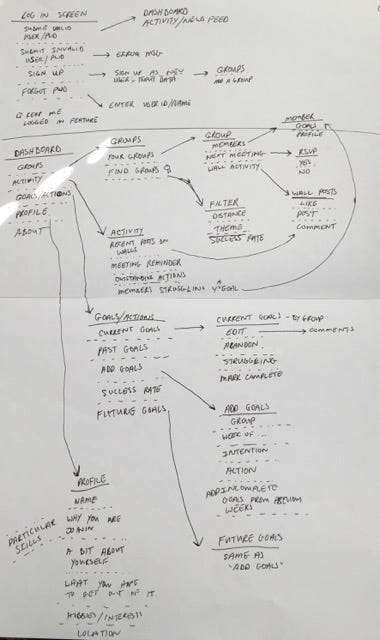 LOG IN SCREEN
SUBMIT VALID
USER/PWD
DASHBOARD
ACTIVITY/NEWS FEED
SUBMIT INVALID
USER/PWD
ERROR MSG
SIGN UP
SIGN UP AS NEW
USER - INPUT DATA
GROUPS
A GROUP
FORGOT PWD
ENTER USER ID/NAME
KEEP ME
LOGGED IN FEATURE
DASHBOARD
GROUPS
ACTIVITY
GOALS/ACTIONS
PROFILE
ABOUT
GROUPS
YOUR GROUPS
FIND GROUPS
GROUP
MEMBERS
NEXT MEETING
WALL ACTIVITY
MEMBER
GOALS
PROFILE
RSVP
YES
NO
WALL POSTS
LIKE
POST
COMMENT
FILTER
DISTANCE
THEME
SUCCESS RATE
ACTIVITY
RECENT POSTS ON
WALLS
MEETING REMINDER
OUTSTANDING ACTIONS
MEMBERS STRUGGLING GOAL
GOALS/ACTIONS
CURRENT GOALS
PAST GOALS
ADD GOALS
SUCCESS RATE
FUTURE GOALS
CURRENT GOALS - BY GROUP
EDIT
COMMENTS
ABANDON
STRUGGLING
MARK COMPLETE
ADD GOALS
GROUP
WEEK OF ...
INTENTION
ACTION
ADD INCOMPLETE
GOALS FROM PREVIOUS
WEEKS
FUTURE GOALS
SAME AS
"ADD GOALS"
PROFILE
NAME
WHY YOU ARE
JOININ
PARTICULAR
SKILLS
A BIT ABOUT
YOURSELF
WHAT YOU HOPE
TO GET OUT OF IT
HOBBIES/INTERESTS
LOCATION